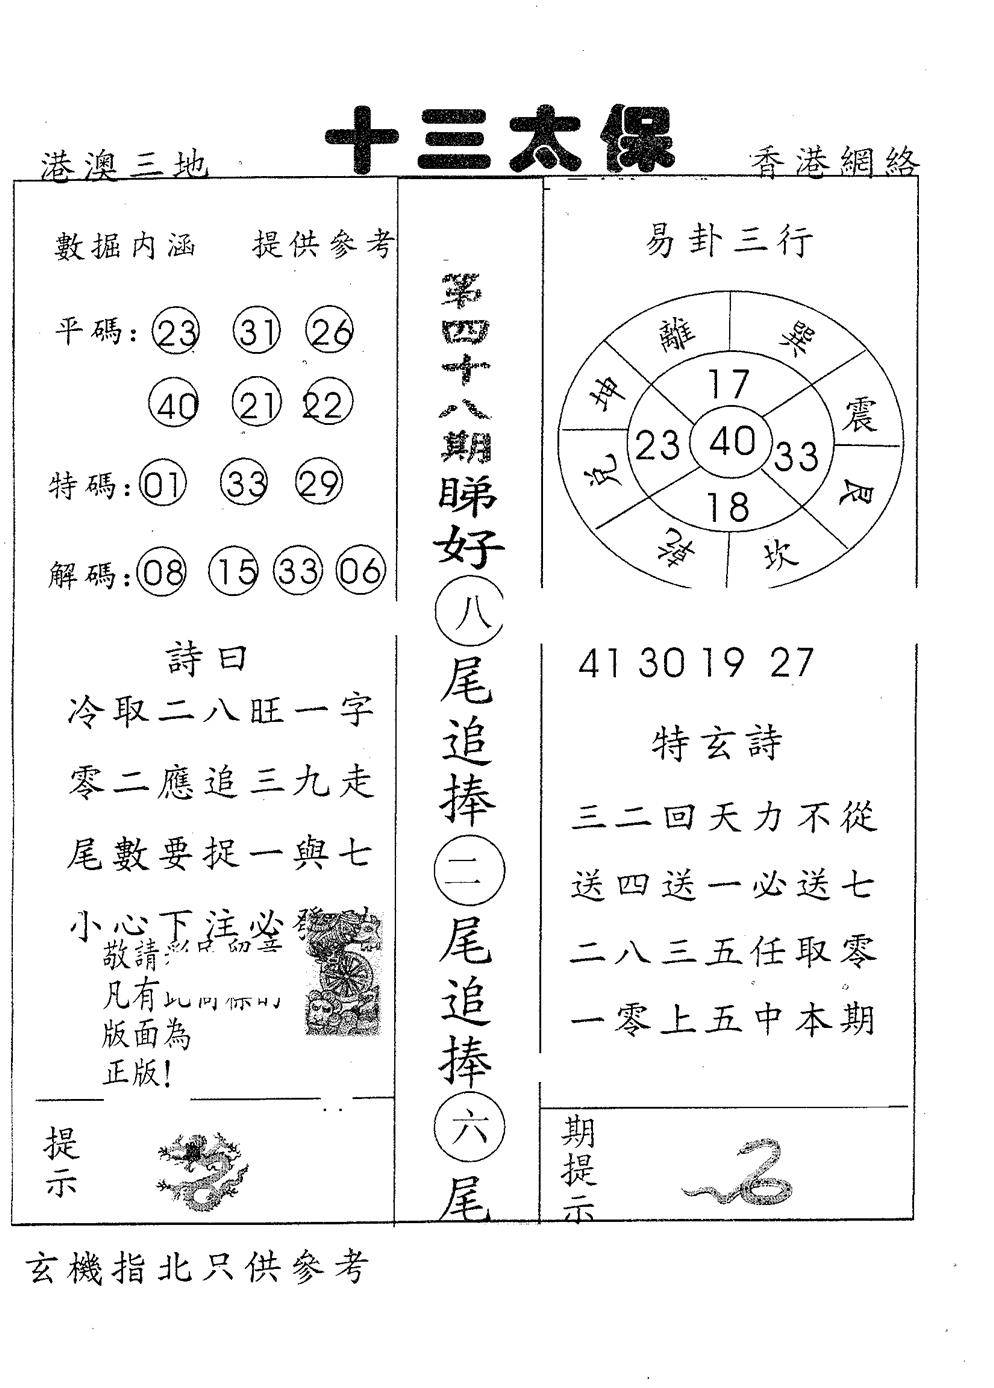 十三太保
港澳三地
香港網絡
數掘内涵 提供參考
平碼: 23 31 26
40 21 22
特碼: 01 33 29
解碼: 08 15 33 06
詩曰
冷取二八旺一字
零二應追三九走
尾數要捉一與七
小心下注必發
敬請
凡有
版面為
正版!
提示
第四十八期睇好八尾追捧二尾追捧六尾
易卦三行
離 巽
坤 震
兌 艮
乾 坎
17
23 40 33
18
41 30 19 27
特玄詩
三二回天力不從
送四送一必送七
二八三五任取零
一零上五中本期
期提示
玄機指北只供參考